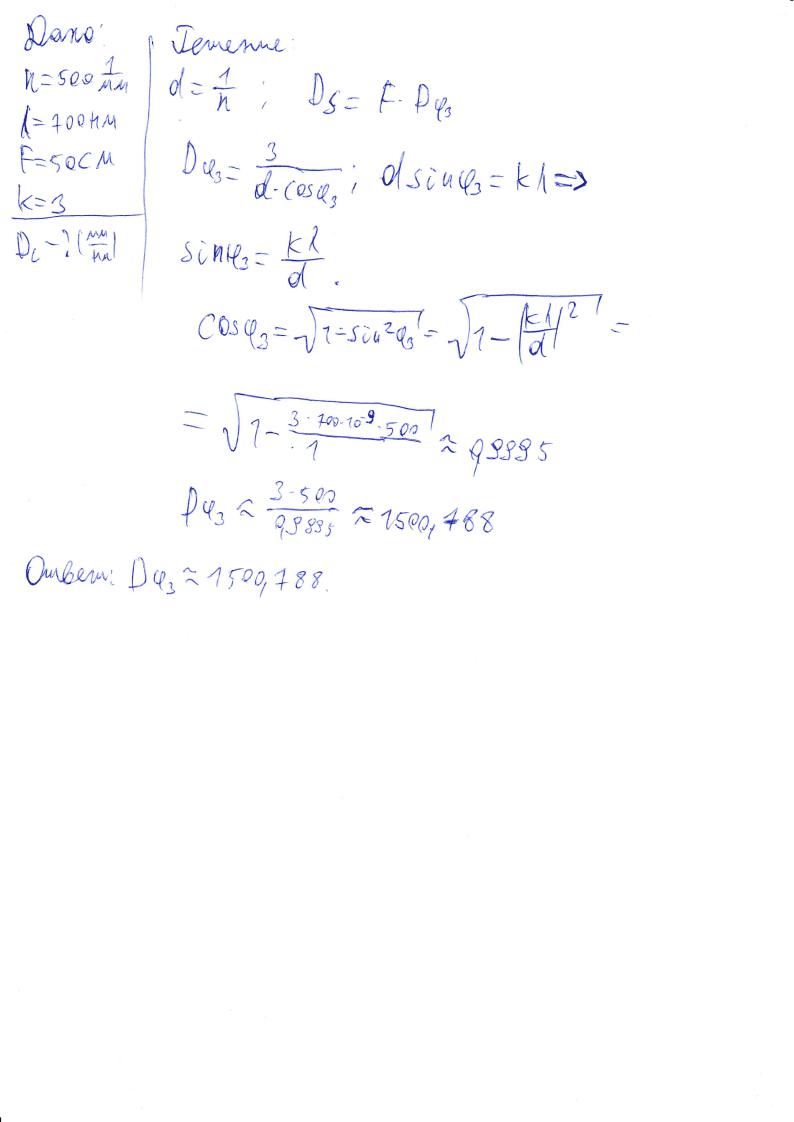 Дано:
n=500 1/мм
λ=700нм
F=50см
k=3
D_l -? (мм/нм)
Решение:
d = 1/n ; D_s = F·D_φ₃
D_φ₃ = 3/(d·cosφ₃) ; d sinφ₃ = kλ =>
sinφ₃ = kλ/d .
cosφ₃ = √(1-sin²φ₃) = √(1-(kλ/d)²) =
= √(1 - 3·700·10⁻⁹·500/1) ≈ 0,9995
D_φ₃ ≈ 3·500/0,9995 ≈ 1500,788
Ответ: D_φ₃ ≈ 1500,788.